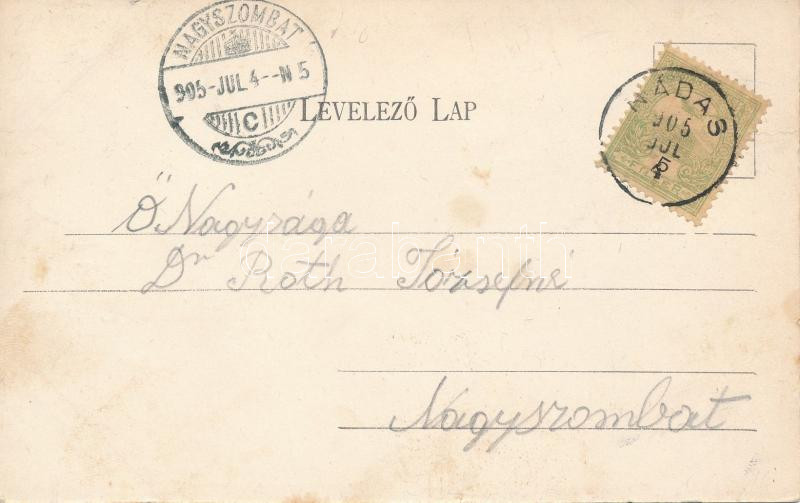 NAGYSZOMBAT
905-JUL 4--N 5
C
LEVELEZŐ LAP
NÁDAS
905
JUL
4
5
FILLÉR
Ő Nagysága
Dr Róth Józsefné
Nagyszombat
darabanth